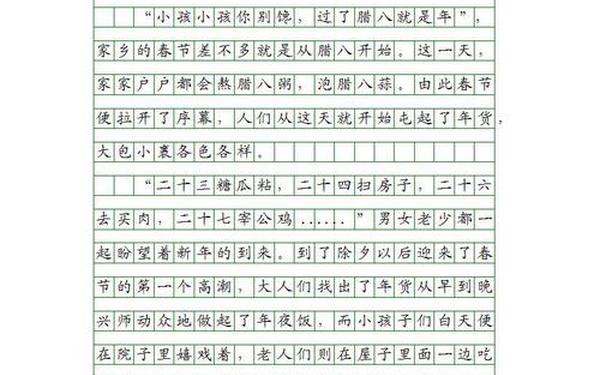 “小孩小孩你别馋，过了腊八就是年”，
家乡的春节差不多就是从腊八开始。这一天，
家家户户都会熬腊八粥，泡腊八蒜。由此春节
便拉开了序幕，人们从这天就开始屯起了年货，
大包小裹各色各样。
“二十三糖瓜粘，二十四扫房子，二十六
去买肉，二十七宰公鸡……”男女老少都一
起盼望着新年的到来。到了除夕以后迎来了春
节的第一个高潮，大人们找出了年货从早到晚
兴师动众地做起了年夜饭，而小孩子们白天便
在院子里嬉戏着，老人们则在屋子里面一边吃